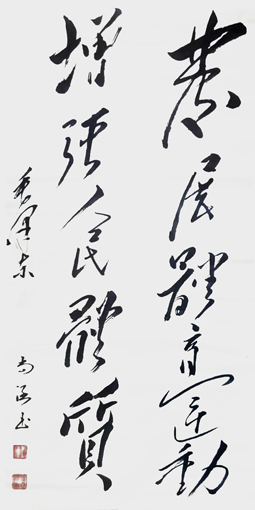 發展體育運動
增強人民體質